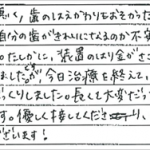 悪く、歯のはえかわりもおそかった
自分の歯がきれいにさえるのか不安
。たしかに、装置のはり金がさ
ましたが、今日治療を終えて、
っくりしました。長くて大変だっ
す。優しく接してくださり、
ざいます!